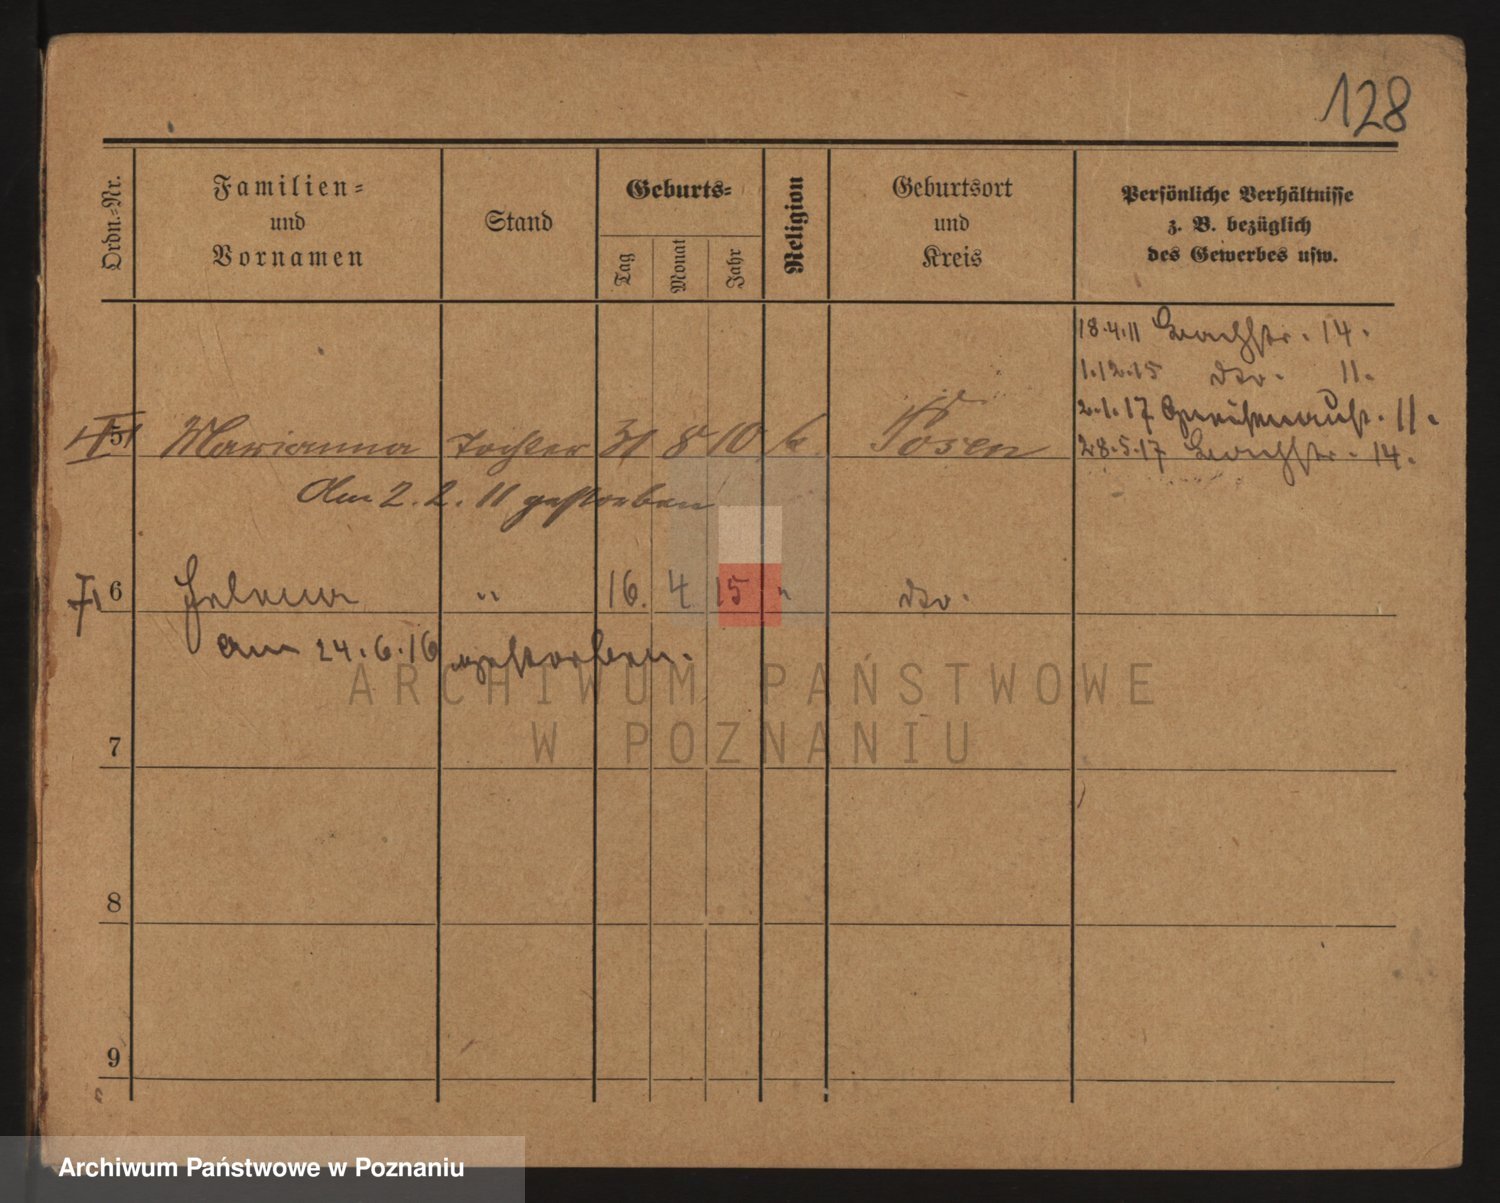 128
Ordn.-Nr.
Familien-
und
Vornamen
Stand
Geburts-
Tag
Monat
Jahr
Religion
Geburtsort
und
Kreis
Persönliche Verhältnisse
z. B. bezüglich
des Gewerbes usw.
18.4.11 Bachstr. 14.
1.12.15 dto. 11.
2.1.17 11.
28.5.17 Bachstr. 14.
5 Marianna Tochter 31 8 10 k. Posen
Am 2.2.11 gestorben
6 Helena " 16. 4 15 " dto.
am 24.6.16 gestorben.
ARCHIWUM PAŃSTWOWE
W POZNANIU
7
8
9
Archiwum Państwowe w Poznaniu